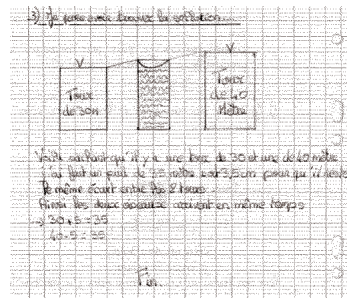 3) Je pense avoir trouver la solution
Tour
de 30m
Tour
de 40
Mètre
Voilà sachant qu'il y a une tour de 30 et une de 40 mètre
un puit de 35 mètre soit 3,5 cm pour qu'il reste
le même écart entre les 2 tours.
Ainsi les deux oiseaux arrivent en même temps
→ 30+5=35
40-5=35
Fin